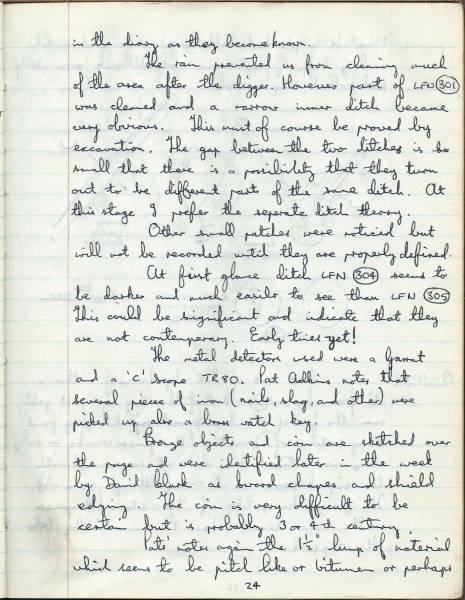 in the diary as they become known.
The rain prevented us from cleaning much
of the area after the digger. However part of LFN 301
was cleaned and a narrow inner ditch became
very obvious. This must of course be proved by
excavation. The gap between the two ditches is so
small that there is a posibility that they turn
out to be different part of the same ditch. At
this stage I prefer the seperate ditch theory.
Other small patches were noticed but
will not be recorded until they are properly defined.
At first glance ditch LFN 304 seems to
be darker and much easier to see than LFN 305
This could be significant and indicate that they
are not contemporary. Early times yet!
The metal detectors used were a Garrut
and a 'C' scope TR80. Pat Adkins notes that
several pieces of iron (nails, slag, and other) were
picked up also a brass watch key.
Bronze objects and coin are sketched over
the page and were identified later in the week
by David Clark as sword chapes and shield
edging. The coin is very difficult to be
certain but is probably 3 or 4th century.
Pats' notes again the 1½" lump of material
which seems to be pitch like or bitumen or perhaps
24